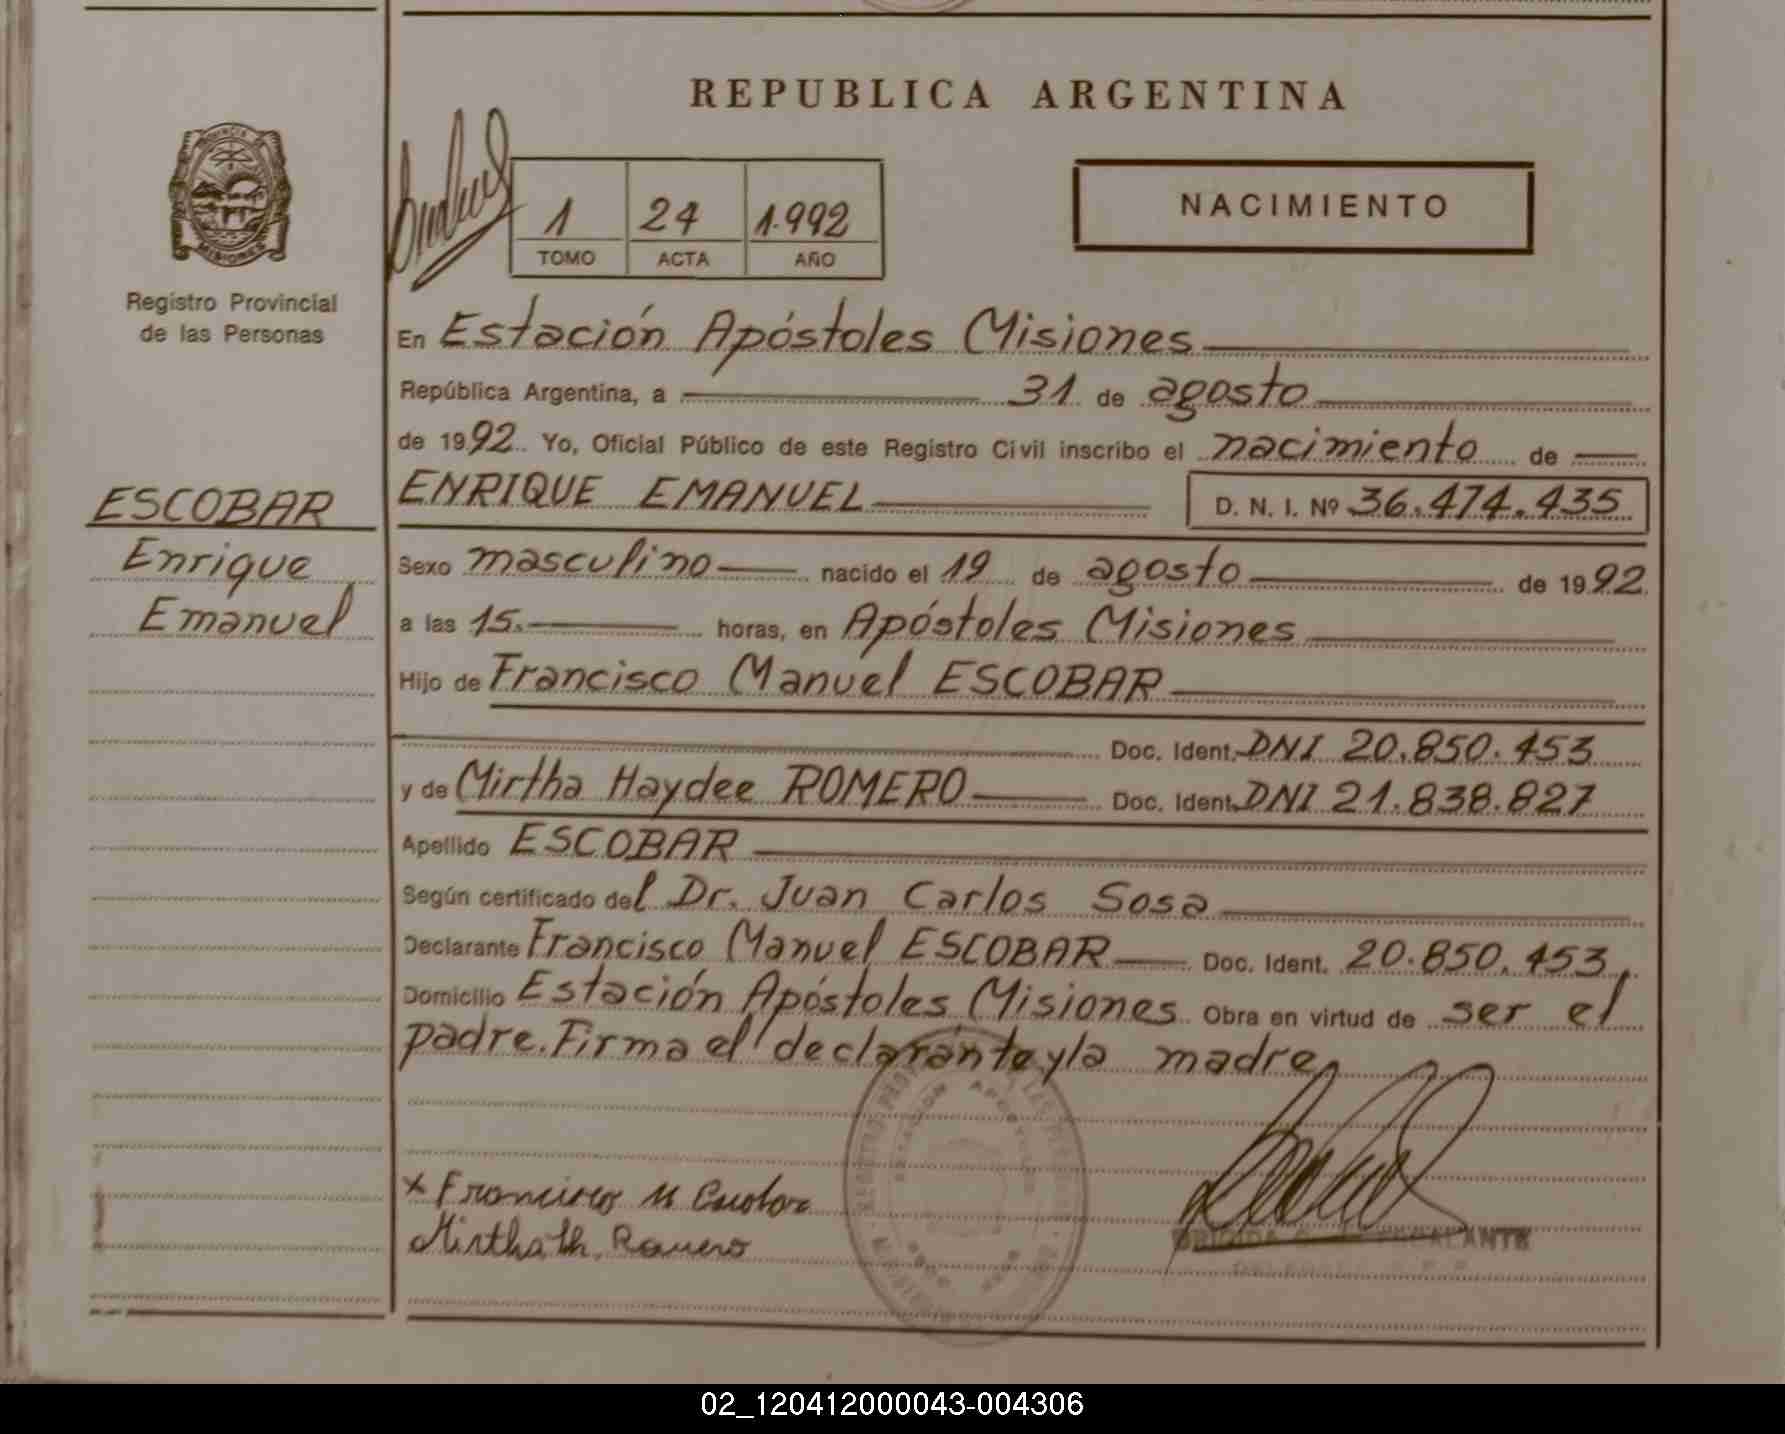 REPUBLICA ARGENTINA
PROVINCIA
MISIONES
Registro Provincial
de las Personas
1 24 1.992
TOMO ACTA AÑO
NACIMIENTO
En Estación Apóstoles Misiones
República Argentina, a 31 de agosto
de 1992 Yo, Oficial Público de este Registro Civil inscribo el nacimiento de
ESCOBAR
Enrique
Emanuel
ENRIQUE EMANUEL D. N. I. Nº 36.474.435
Sexo masculino nacido el 19 de agosto de 1992
a las 15. horas, en Apóstoles Misiones
Hijo de Francisco Manuel ESCOBAR
Doc. Ident. DNI 20.850.453
y de Mirtha Haydee ROMERO Doc. Ident. DNI 21.838.827
Apellido ESCOBAR
Según certificado del Dr. Juan Carlos Sosa
Declarante Francisco Manuel ESCOBAR Doc. Ident. 20.850.453,
Domicilio Estación Apóstoles Misiones Obra en virtud de ser el
padre. Firma el declarante y la madre
x Francisco M Escobar
Mirtha H. Romero
ESTACION APOSTOLES
ESCALANTE
02_120412000043-004306